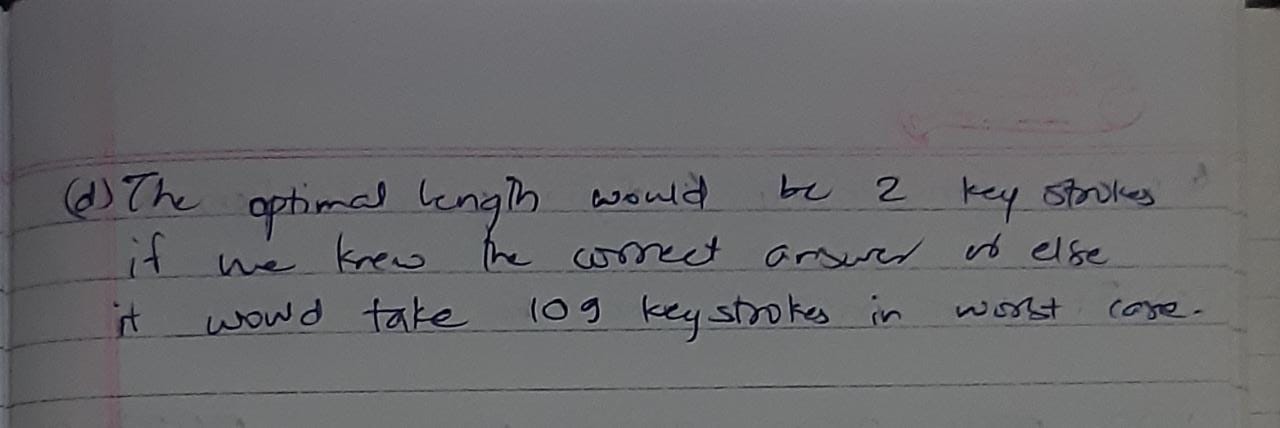 (d) The optimal length would be 2 key strokes
if we knew the correct answer or else
it would take 109 keystrokes in worst case.